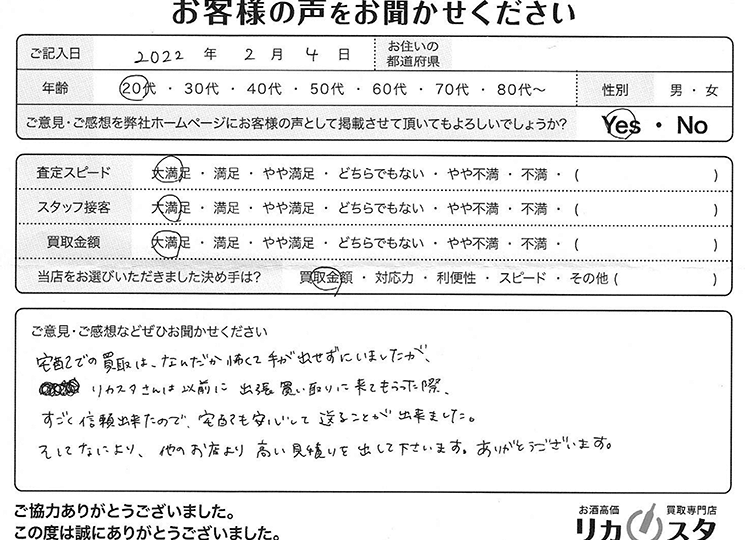 お客様の声をお聞かせください
ご記入日 2022 年 2 月 4 日 お住いの都道府県
年齢 20代 ・ 30代 ・ 40代 ・ 50代 ・ 60代 ・ 70代 ・ 80代～ 性別 男 ・ 女
ご意見・ご感想を弊社ホームページにお客様の声として掲載させて頂いてもよろしいでしょうか? Yes ・ No
査定スピード 大満足 ・ 満足 ・ やや満足 ・ どちらでもない ・ やや不満 ・ 不満 ・ ( )
スタッフ接客 大満足 ・ 満足 ・ やや満足 ・ どちらでもない ・ やや不満 ・ 不満 ・ ( )
買取金額 大満足 ・ 満足 ・ やや満足 ・ どちらでもない ・ やや不満 ・ 不満 ・ ( )
当店をお選びいただきました決め手は? 買取金額 ・ 対応力 ・ 利便性 ・ スピード ・ その他 ( )
ご意見・ご感想などぜひお聞かせください
宅配での買取は、なんだか怖くて手が出せずにいましたが、
リカスタさんは以前に出張買い取りに来てもらった際、
すごく信頼出来たので、宅配でも安心して送ることが出来ました。
そしてなにより、他のお店より高い見積りを出して下さいます。ありがとうございます。
ご協力ありがとうございました。
この度は誠にありがとうございました。
お酒高価 買取専門店
リカスタ